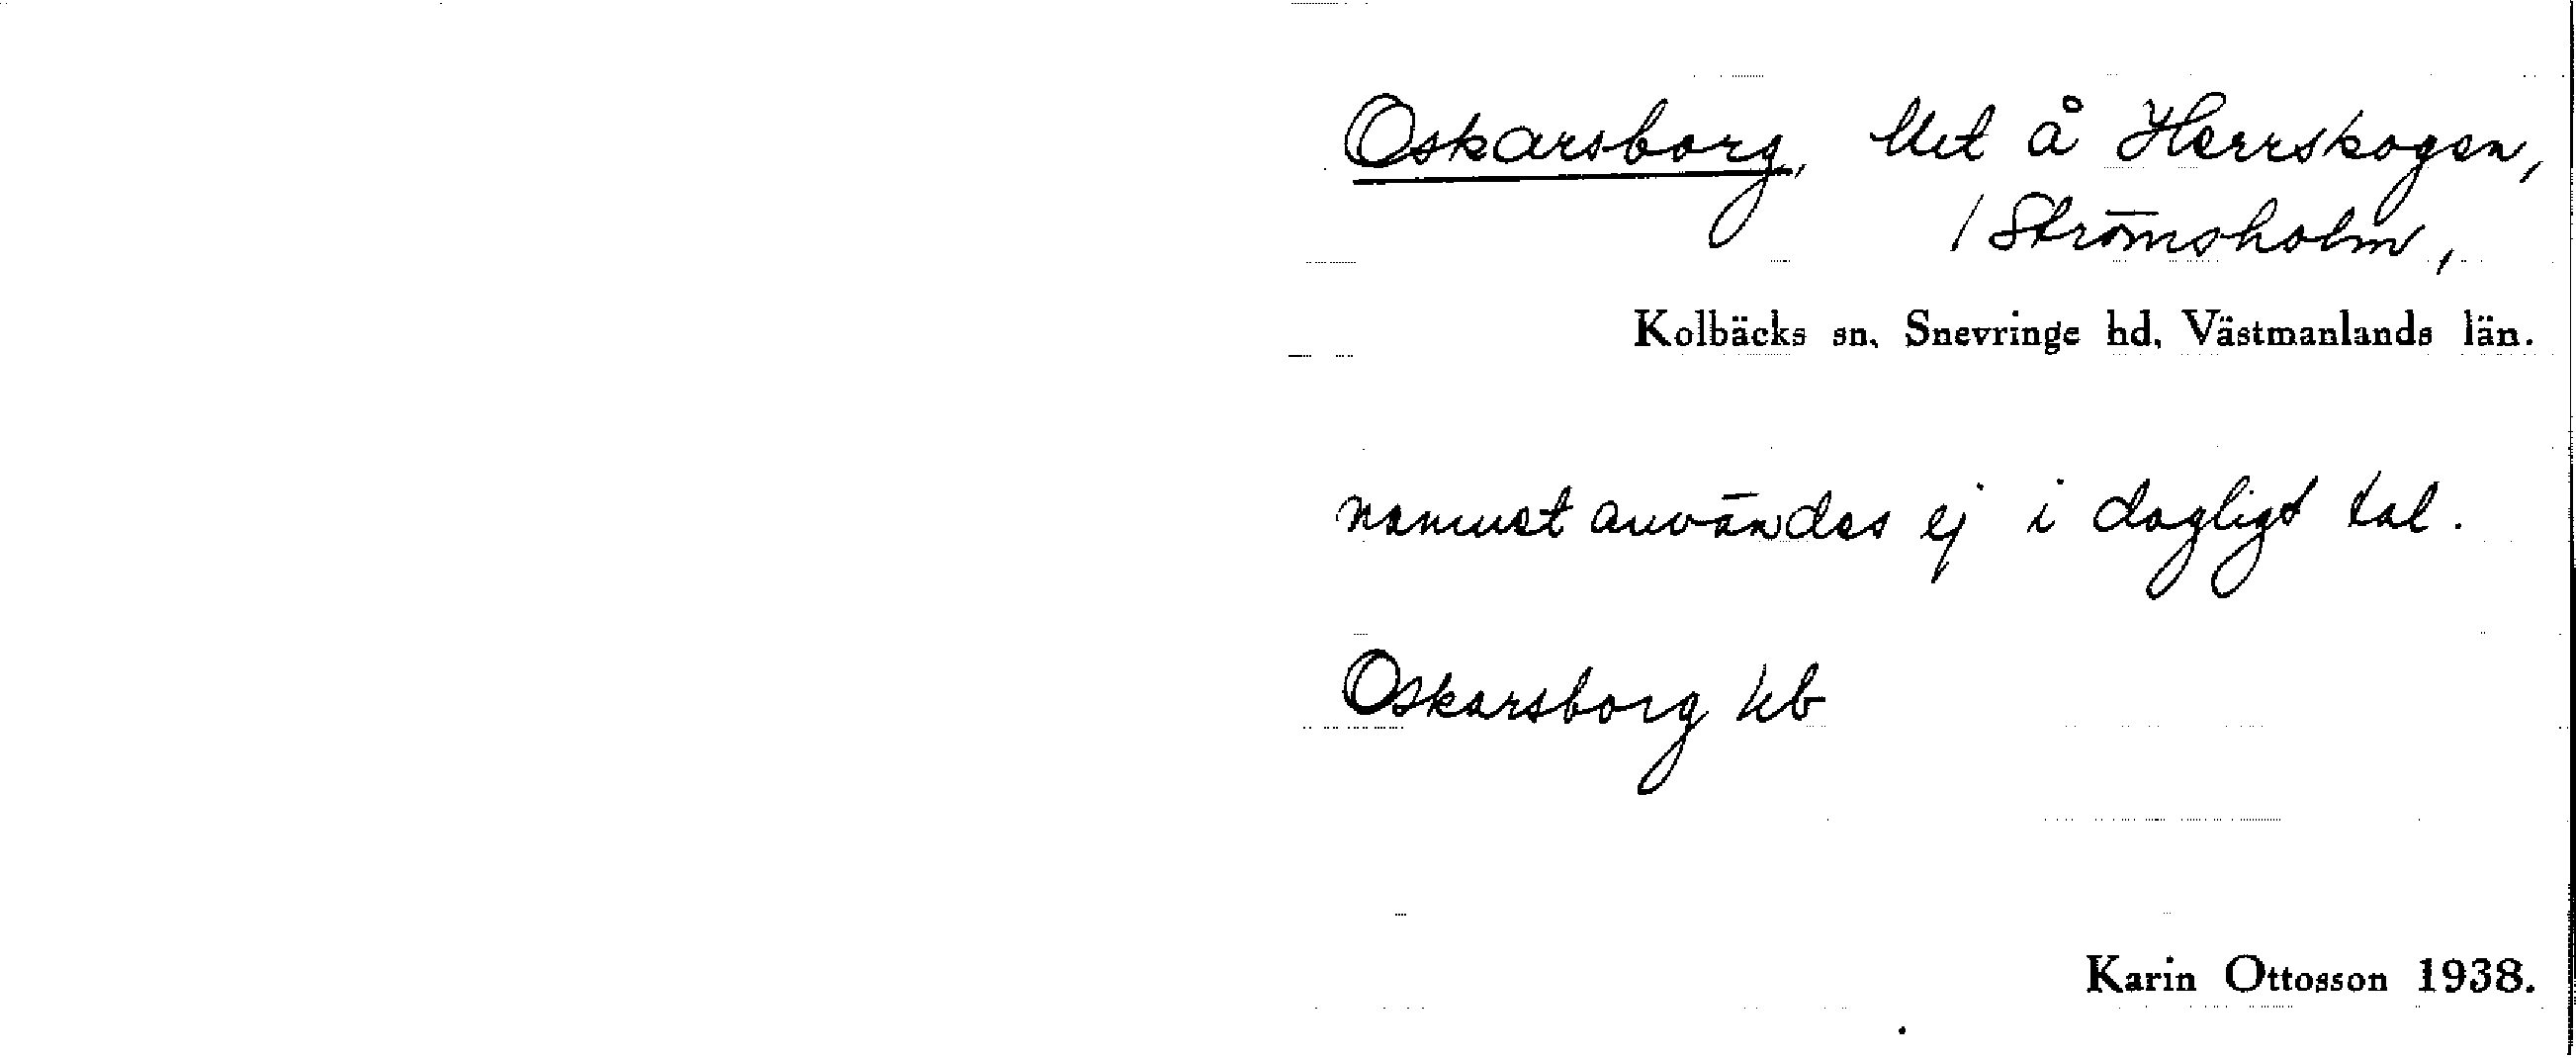 Oskarsborg, lht å Herrskogen,
/ Strömsholm,
Kolbäcks sn, Snevringe hd, Västmanlands län.
namnet användes ej i dagligt tal.
Oskarsborg kb
Karin Ottosson 1938.